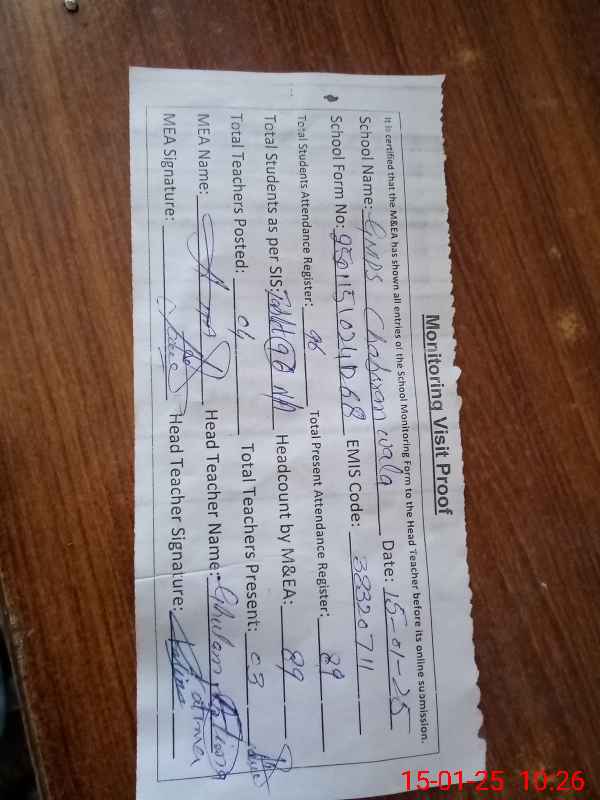 Monitoring Visit Proof
It is certified that the M&EA has shown all entries of the School Monitoring Form to the Head Teacher before its online submission.
School Name: GMPS Date: 15-01-25
School Form No: EMIS Code: 38320711
Total Students Attendance Register: 96 Total Present Attendance Register: 89
Total Students as per SIS: Headcount by M&EA: 89
Total Teachers Posted: 04 Total Teachers Present: 03
MEA Name: Head Teacher Name: Ghulam Fatima
MEA Signature: Head Teacher Signature:
15-01-25 10:26